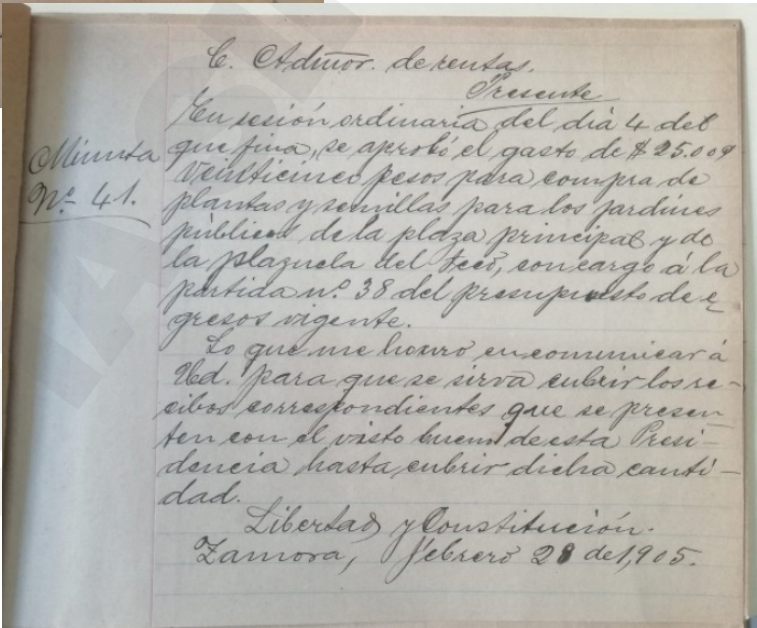 C. Admor. de rentas.
Presente
Minuta
Nº 41.
En sesión ordinaria del día 4 del
que fina, se aprobó el gasto de $ 25.00
veinticinco pesos para compra de
plantas y semillas para los jardines
públicos de la plaza principal y de
la plazuela del Teco, con cargo á la
partida nº 38 del presupuesto de e
gresos vigente.
Lo que me honro en comunicar á
Ud. para que se sirva cubrir los re-
cibos correspondientes que se presen
ten con el visto bueno de esta Presi-
dencia hasta cubrir dicha canti-
dad.
Libertad y Constitución.
Zamora, febrero 28 de 1,905.